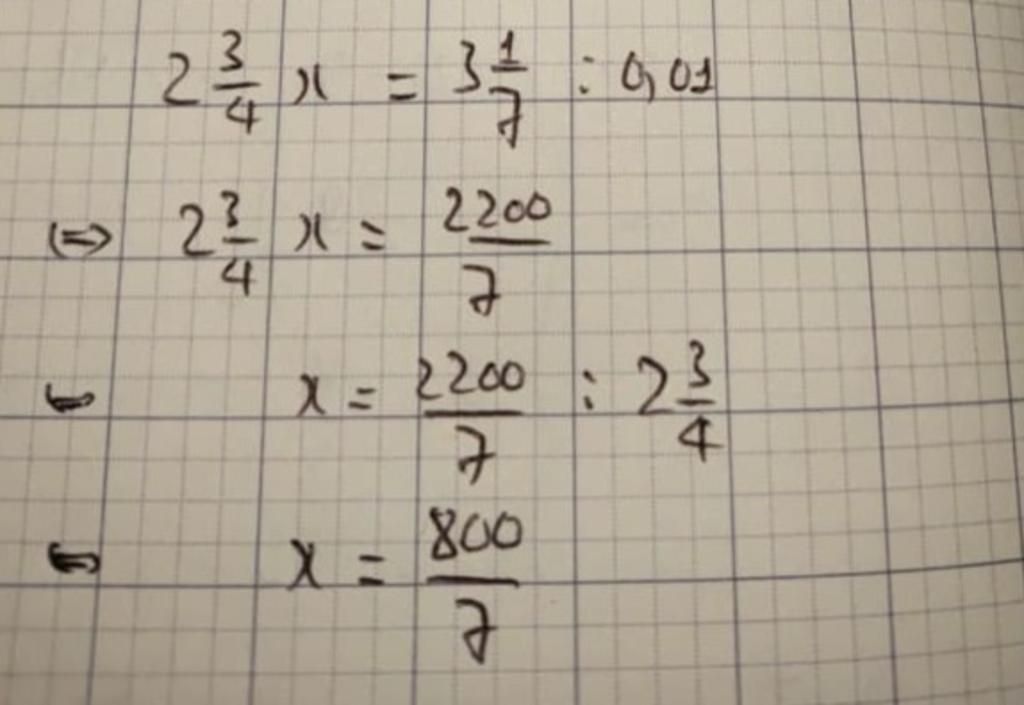 2 3/4 x = 3 1/7 : 0,01
⇔ 2 3/4 x = 2200/7
⇔ x = 2200/7 : 2 3/4
⇔ x = 800/7